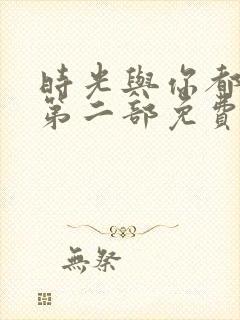 時光與你都
第二部免費
無祭